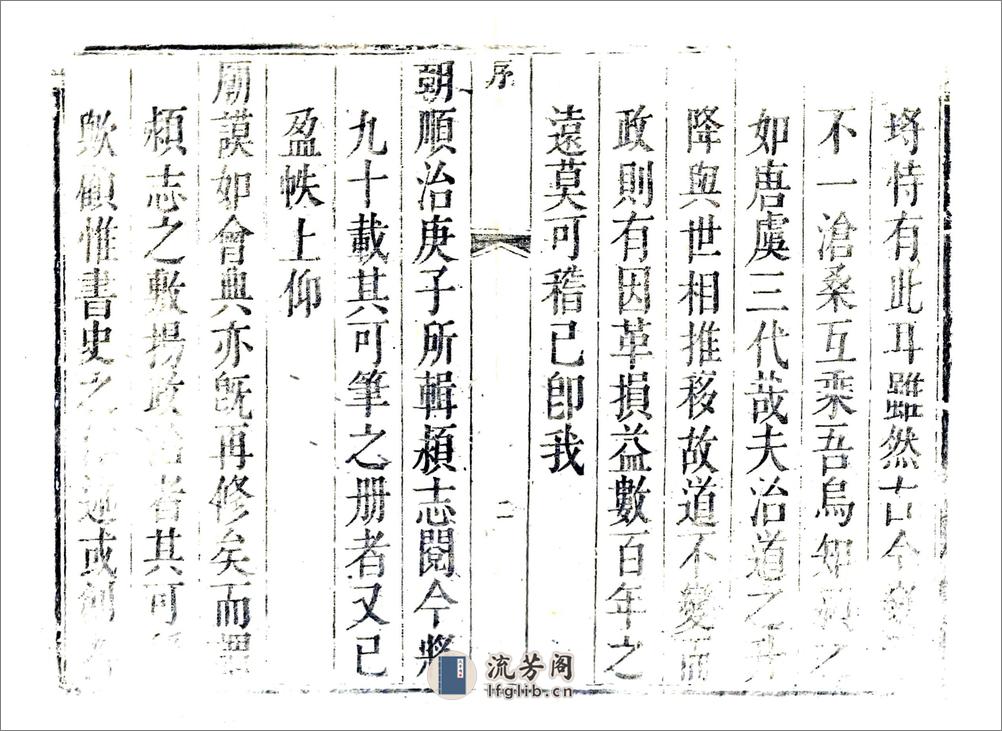 將恃有此耳雖然古今
不一滄桑互乘吾烏知
如唐虞三代哉夫治道之升
降與世相推移故道不變而
政則有因革損益數百年之
遠莫可稽已卽我
序
二
朝順治庚子所輯潁志閱今將
九十載其可筆之册者又已
盈帙上仰
廟謨如會典亦旣再修矣而謂
潁志之敷揚政者其可
歟顧惟書史之述或創
流芳阁
lfglib.cn